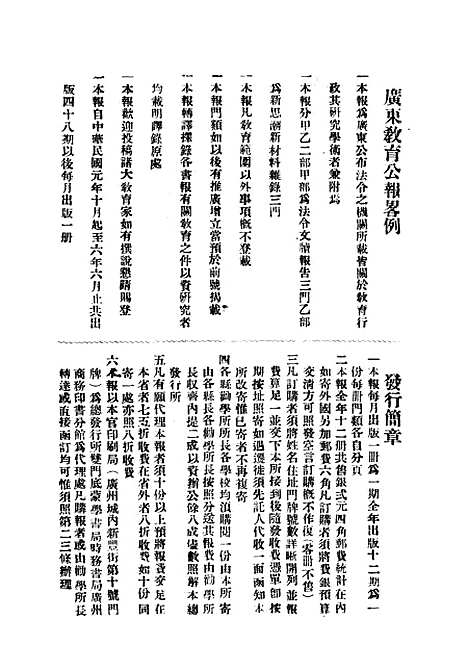 廣東教育公報畧例
一本報爲廣東公布法令之機關所載皆關於教育行
政其研究學術者兼附爲
一本報分甲乙二部甲部爲法令文牘報告三門乙部
爲新思潮新材料雜錄三門
一本報凡教育範圍以外事項槪不登載
一本報門類如以後有推廣增立當預於前號揭載
一本報轉譯採錄各書報有關教育之件以資研究者
均載明譯錄原處
一本報歡迎投稿諸大教育家如有撰說懇請賜登
一本報自中華民國元年十月起至六年六月止共出
版四十八期以後每月出版一册
發行簡章
一本報每月出版一册爲一期全年出版十二期爲一
份每册門類各自分頁
二本報全年十二册共售銀弍元四角郵費統計在內
如寄外國另加郵費六角凡訂購者須將費銀預算
交淸方可照發空言訂購槪不作復(零册不售)
三凡訂購者須將姓名住址門牌號數詳晰開列並報
費算足一並交下本所接到後隨發收費憑單卽按
期按址照寄如遇遷徙須先託人代收一面函知本
所改寄惟已寄者不再複寄
四各縣勸學所所長各學校均須購閱一份由本所寄
由各縣長各勸學所長按照分送其報費由勸學所
長收齊內提二成以資辦公餘八成儘數照解本總
發行所
五凡有願代理本報者須十份以上預將報費交足在
本省者七五折收費在省外者八折收費如十份同
寄一處亦照八折收費
六本報以本官印刷局(廣州城內新豐街第十號門
牌)爲總發行所雙門底蒙學書局時務書局廣州
商務印書分館爲代理處凡購報者或由勸學所長
轉達或直接函訂均可惟須照第二三條辦理